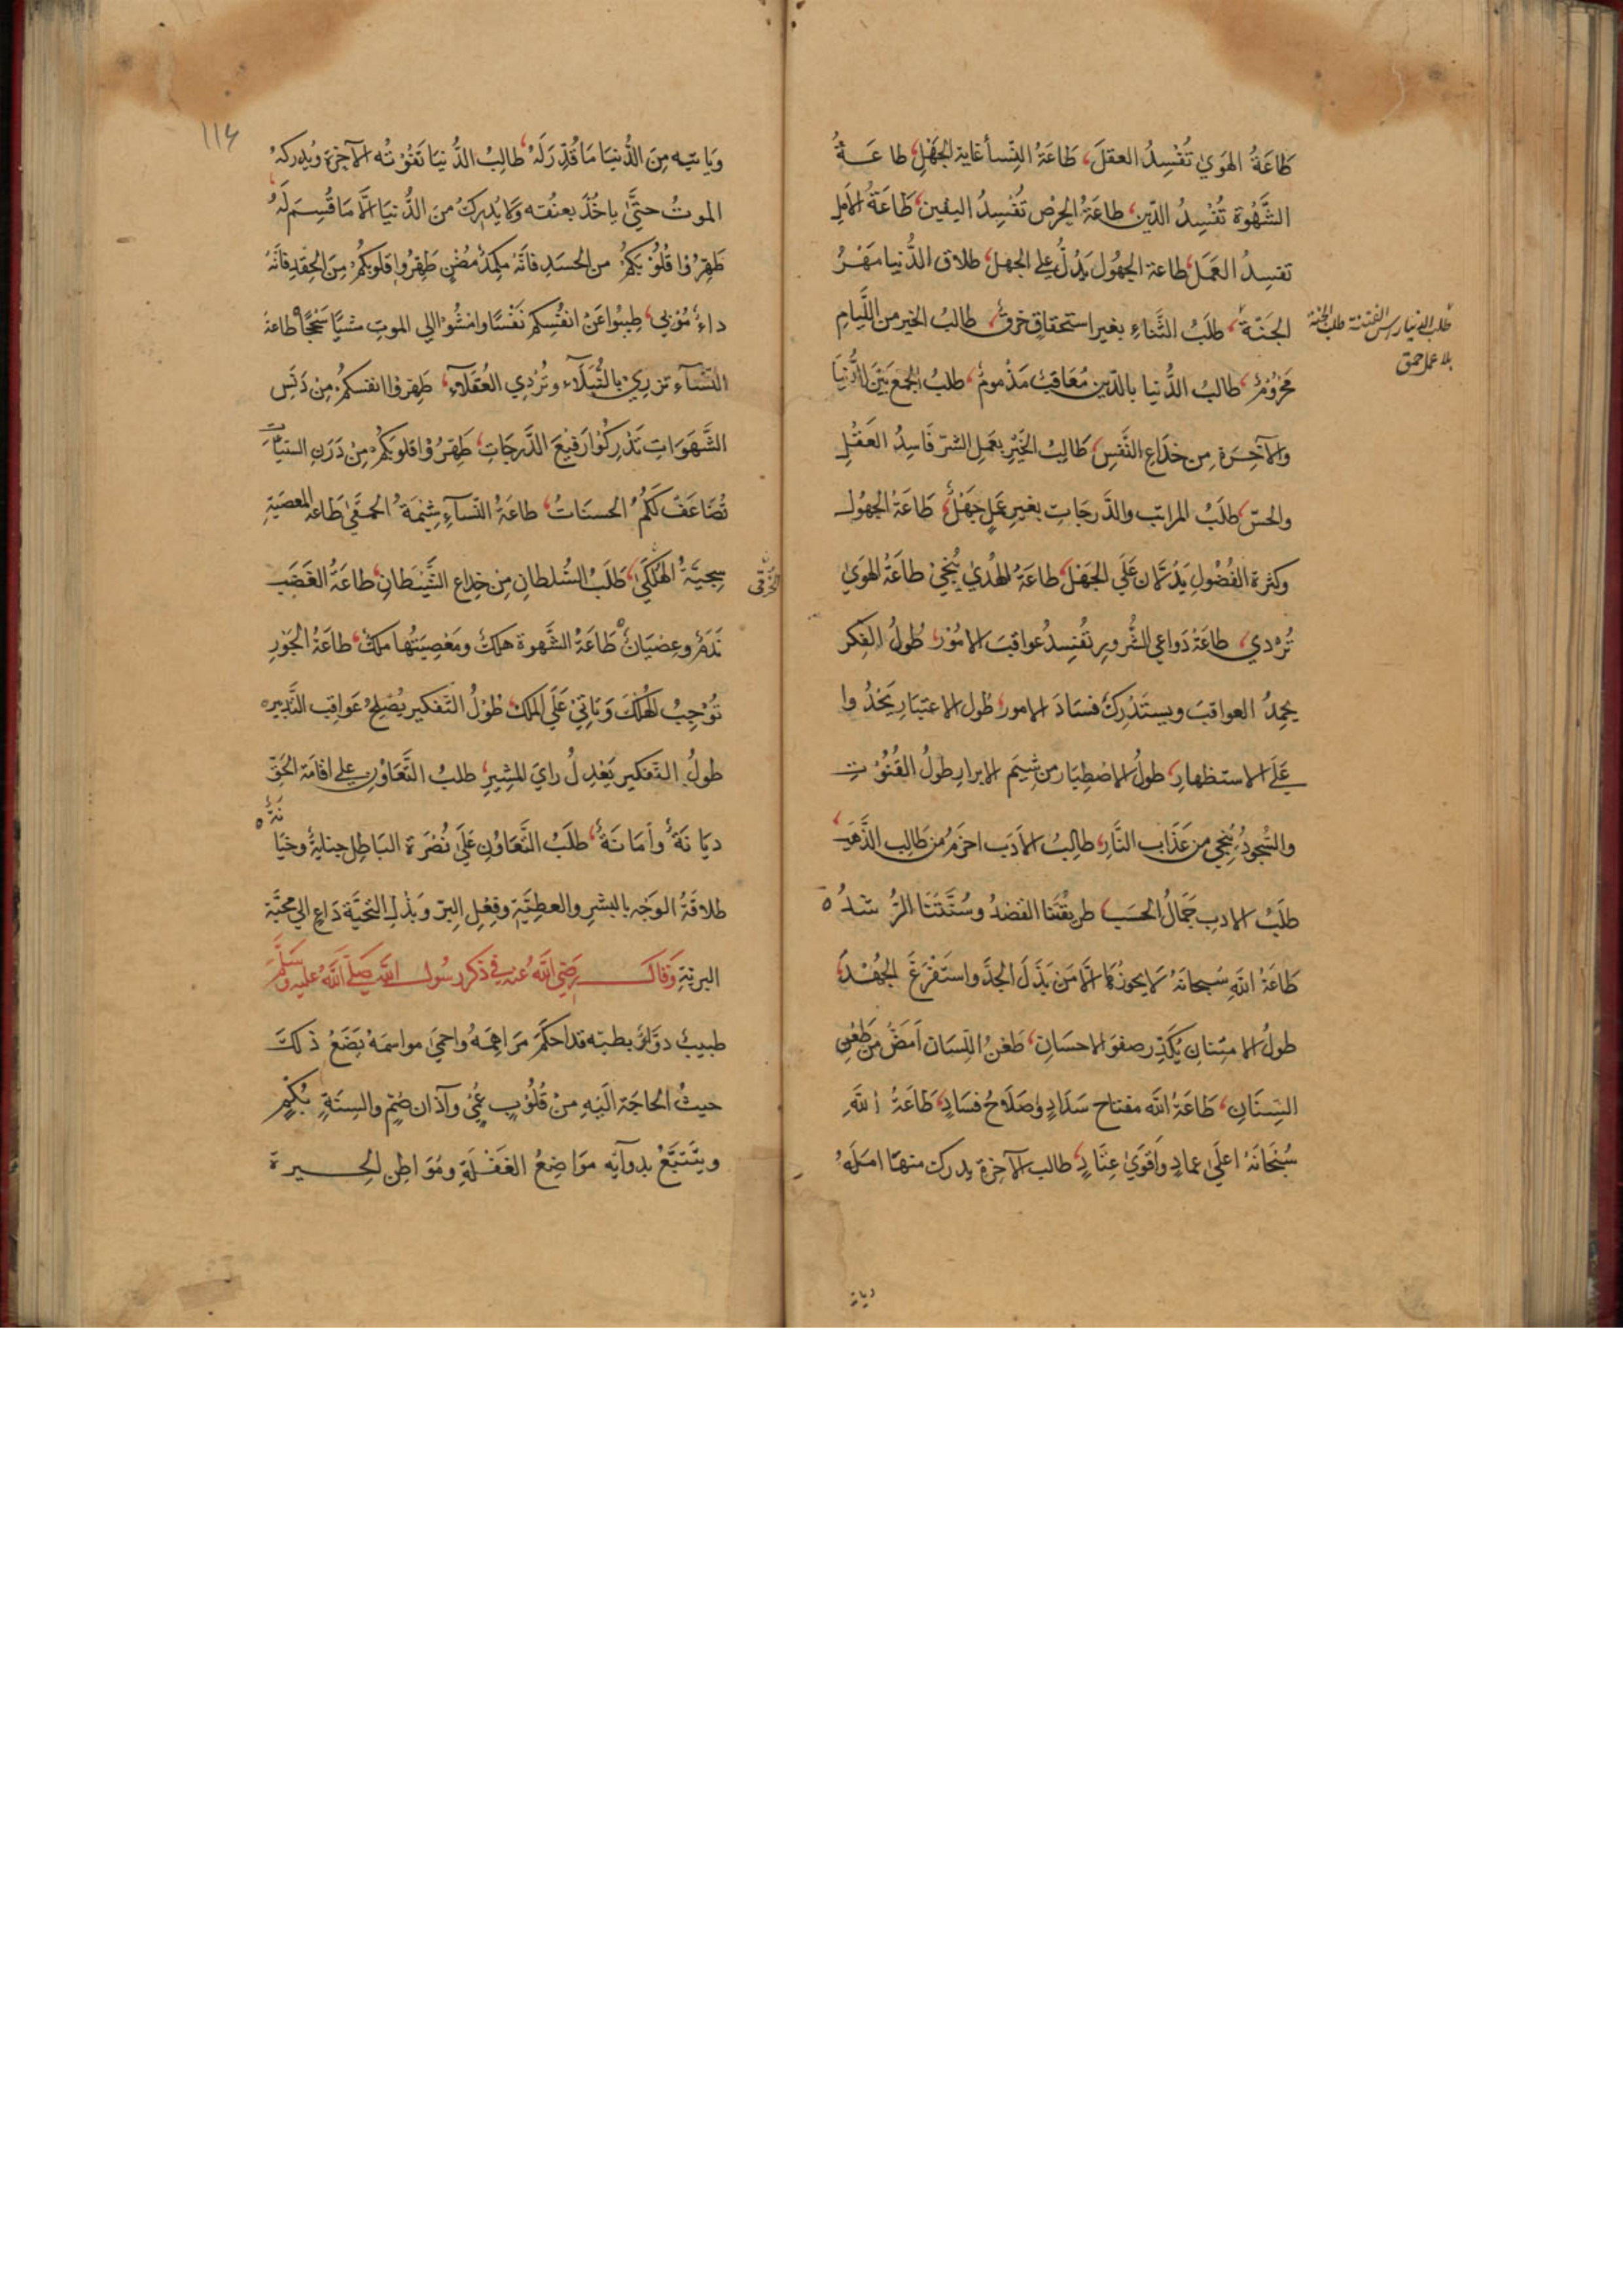 طَاعَةُ الهَوَىٰ تُفْسِدُ العقلَ، طَاعَةُ النِّسأ غاية الجَهْلِ، طاعَــةُ
الشَّهْوَة تُفْسِدُ الدّين، طاعَةُ الحِرْص تُفْسِدُ اليقين، طَاعَةُ الأمَلِ
تفسِدُ العَمَل، طاعة الجهُول يَدُلُّ على الجهل، طلاق الدُّنيا مَهْـرُ
الجَنّة، طلَبُ الثَّناءِ بغير استحقاقٍ خرقٌ، طالبُ الخير من اللِّيَامِ
طلب الدنيا راس الفتنة طلب الجنة
بلا عمل حمق
مَحْرُومٌ، طالبُ الدُّنيا بالدّينِ مُعَاقَبٌ مَذْمومٌ، طلبُ الجمْعَ بَيْنَ الدُّنيَا
والآخِـرَة مِن خدَاعِ النَّفسِ، طَالِبُ الخَيْرِ بعَمِلِ الشرّ فَاسِدُ العَقْلِ
والحسّ، طلَبُ المراتب والدَّرجَاتِ بغيرِ عَمَلٍ جَهْلٌ، طَاعَةُ الجهُول
وكثرة الفُضُولِ يَدُلَّان عَلَى الجَهْل، طاعَةُ الهُدَى يُنْجِيْ طاعَةُ الهوَىٰ
تُرْدي، طاعَةُ دَواعي الشُّرورِ تُفْسِدُ عواقبَ الامُوْر، طُولُ الفِكر
يحمِدُ العواقبَ ويستَدْرِكُ فسَادَ الامور، طُول الاعتبَارِ يَحْدُوا
عَلَى الاستظهارِ، طولُ الاصْطِبَار من شِيَم الابرارِ طولُ القنُوْتِ
والسُّجودُ يُنْجِي من عَذَاب النَّارِ، طالِبُ الأدَب احزَمُ مِن طَالِب الذَّهَبِ،
طلَبُ الادبِ جَمَالُ الحسَبِ، طريقَتُنا القصْدُ وسُنَّتُنَا الرُّشْدُ ٥
طَاعَةُ اللهِ سُبحانَهُ لَا يحوزُها الّا مَن بَذَلَ الجدَّ واستَفْرَغَ الجُهْــدَ،
طولُ الامتِنانِ يُكَدِّر صفوَ الاحسَانِ، طَعْنُ اللِّسَان اَمَضُّ مِن طَعْنِ
السِّنَانِ، طَاعَةُ اللَّه مفتاح سَدَادٍ واصَلَاحُ فسَادٍ، طَاعَةُ اللَّهِ
سُبْحَانَهُ اعلَىٰ عمادٍ وَاقَوَىٰ عِتَادٍ، طالب الآخِرَة يدرك منهَا امَلَهُ
ويَاتيه مِنَ الدُّنيَا مَا قُدِّرَ لَهُ، طالِبُ الدُّنيَا تَفُوْتُه الآخِرَةُ ويُدركهُ
الموتُ حتَّىٰ ياخُذَ بعنُقه وَلَا يُدرِكُ مِنَ الدُّنيَا الَّا مَا قُسِمَ لَهُ،
طَهِّرُوْا قُلُوْبَكُمْ من الحسَدِ فانَّهُ مكمِدٌ مُضْنٍ طَهِّرُوا قلوبَكُم مِنَ الحِقْدِ فانَّهُ
داءٌ مُوْبي، طِيبُوا عَنْ انفُسِكم نَفْسًا وامْشُوْا الى الموتِ مشيًا سَجحًا طاعة
النّسآء تزرِي بالنُّبَلآءِ وتُرْدي العُقَلآءَ، طَهِّروْا انفسكُمْ مِن دَنَسِ
الشَّهَوَاتِ تَدْرِكُوْا رَفيْعَ الدَّرجَاتِ، طَهِّرُوْا قلوبَكُم مِنْ دَرَنِ السيّاتِ
تُضَاعَف لَكمُ الحسنَاتُ، طاعَةُ النّسآءِ شِيْمَةُ الحمقَىٰ طَاعَة المعصيَةِ
سِجيَّةُ الهَلْكَىٰ، طَلَبُ السُّلطانِ مِن خِداع الشَّيْطَانِ، طاعَةُ الغَضَب
نَدَمٌ وعِصْيَانٌ طَاعَةُ الشَّهوة هلكٌ ومَعْصِيَتُها ملكٌ، طاعَةُ الجَوْرِ
تُوْجِبُ الهُلْكَ وَيَاتِيْ عَلَى المُلك، طُوْلُ التّفكير يُصْلِحُ عَوَاقِب التَّدبير
طولُ التّفكير يَعْدِلُ رايَ المُشِيرِ، طلبُ التَّعَاوُنِ على اقامَة الحَقّ
ديَانَةٌ وأمَانَةٌ، طَلَبُ التَّعَاوُنِ عَلَى نُصْرَة البَاطِل جنايةٌ وخيَا
نَةٌ ٥
طلاقَةُ الوَجْهِ بالبشرِ والعطيَّةِ وفِعْلِ البِرّ وَبَذْلِ التحيَّة دَاعٍ الى محبَّة
البريّةِ وَقالَ رَضِيَ اللَّهُ عنه في ذكر رسُول اللَّه صَلَّى اللَّهُ عليه وسَلَّمَ
طبيبٌ دوّارٌ بطبّه قد احكَمَ مَرَاهِمَهُ واحمَى مواسمَهُ يَضَعُ ذلكَ
حيثُ الحاجَة الَيْهِ مِنْ قُلُوْبٍ عُمْيٍ وآذان صُمٍّ والسِنَةٍ بُكْمٍ
ويتَتَبَّعُ بدوآيَه مَوَاضِعُ الغَفْلَةِ ومَوَاطِن الحيــرة